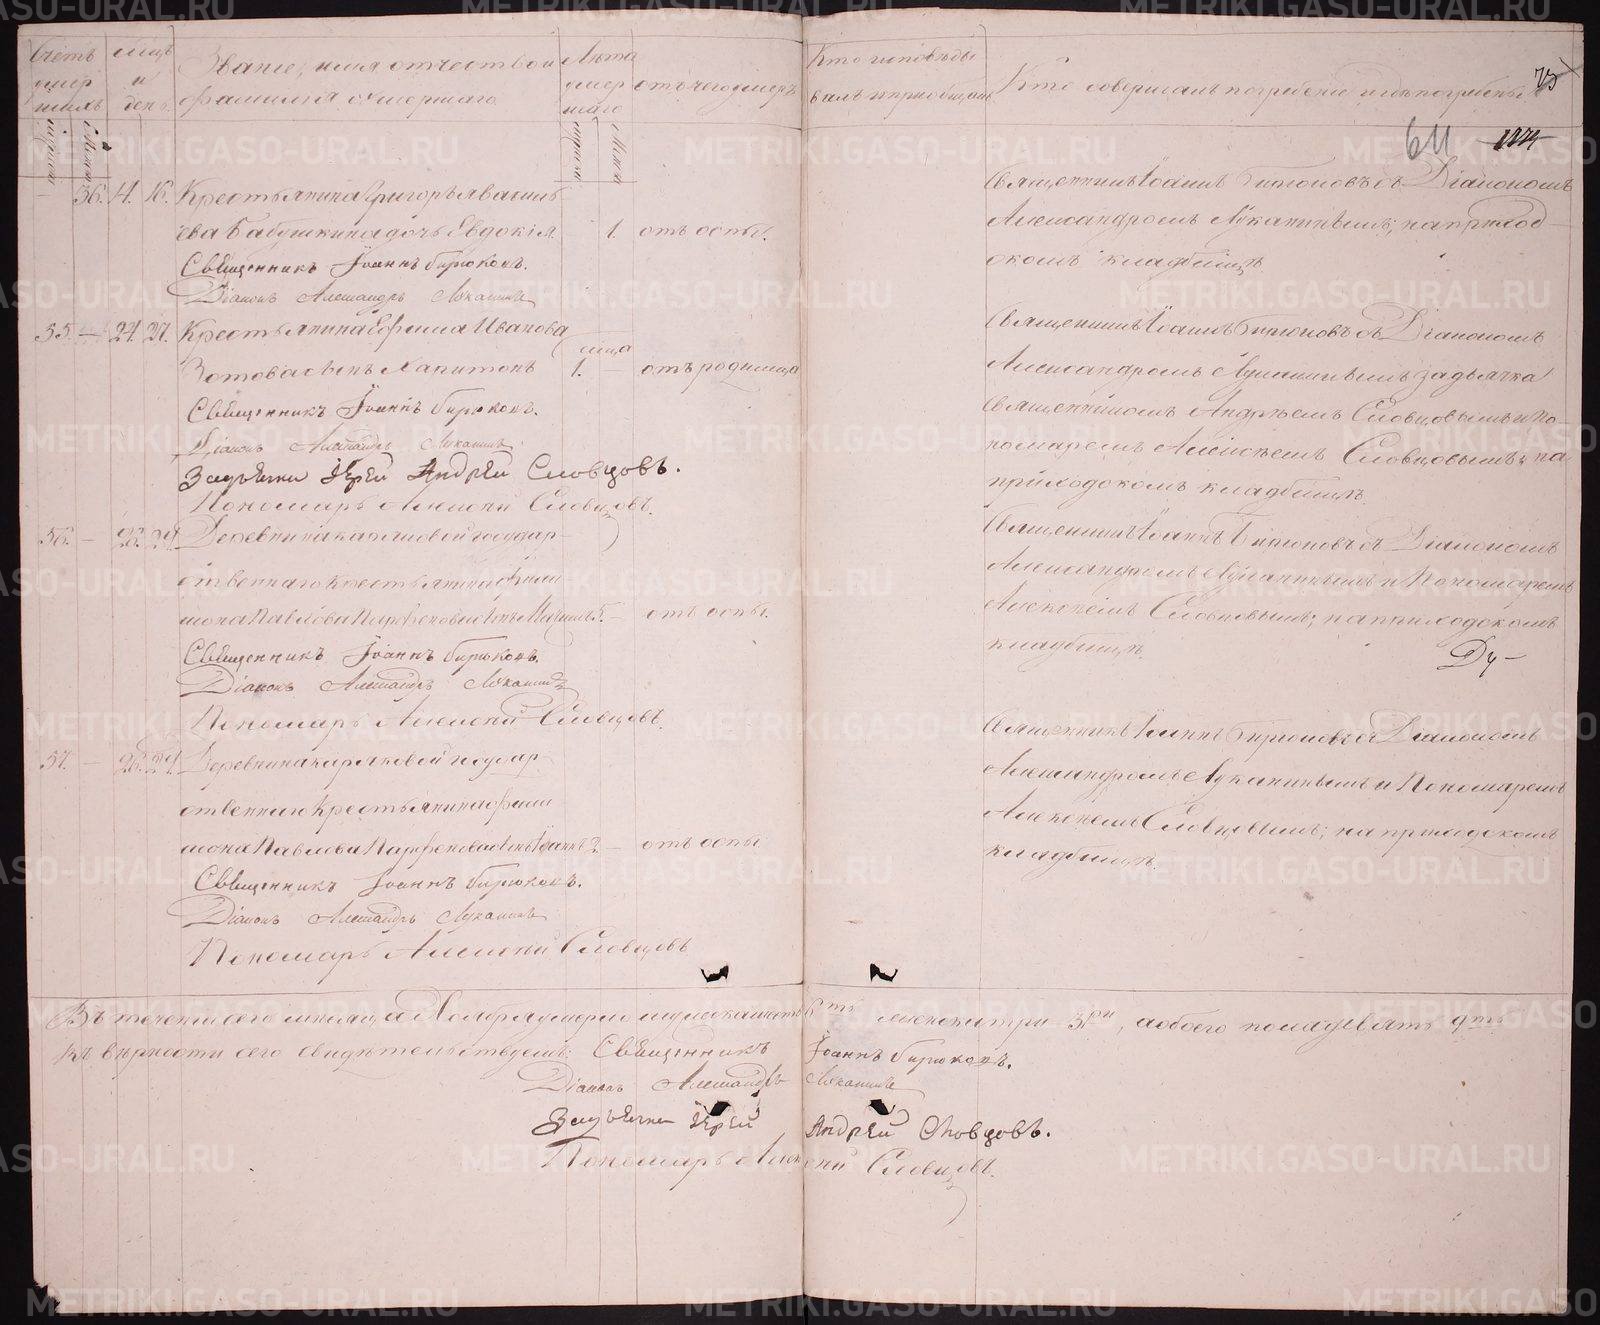 Счетъ умершихъ
мцъ и день
Званіе, имя отчество и фамилія умершаго
Лѣта умершаго
отъ чего умеръ
Кто исповѣдывалъ и пріобщалъ
Кто совершалъ погребеніе и гдѣ погребены
75
64
— 36. 14. 16. Крестьянина Григорья Василь
ева Бабушкина дочь Евдокія. 1. отъ оспы.
Священникъ Іоаннъ Бирюковъ.
Діаконъ Александръ Луканинъ
Священникъ Іоаннъ Бирюковъ съ Діакономъ
Александромъ Луканинымъ; на приход
скомъ кладбищѣ.
55. — 24. 27. Крестьянина Ефима Иванова
Зотова сынъ Капитонъ 1. мца — отъ родимца
Священникъ Іоаннъ Бирюковъ.
Діаконъ Александръ Луканинъ
Задьячка Іерей Андрей Словцовъ.
Пономарь Алексій Словцовъ.
Священникъ Іоаннъ Бирюковъ съ Діакономъ
Александромъ Луканинымъ задьячка
священникомъ Андреемъ Словцовымъ и по-
номаремъ Алексіемъ Словцовымъ; на
приходскомъ кладбищѣ.
56. — 26. 29. Деревни
государ
ственнаго крестьянина Фили
мона Павлова Парфенова сынъ 5. — отъ оспы.
Священникъ Іоаннъ Бирюковъ.
Діаконъ Александръ Луканинъ
Пономарь Алексій Словцовъ.
Священникъ Іоаннъ Бирюковъ съ Діакономъ
Александромъ Луканинымъ и Пономаремъ
Алексіемъ Словцовымъ; на приходскомъ
кладбищѣ.
57. — 26. 29. Деревни
государ
ственнаго крестьянина Фили
мона Павлова Парфенова сынъ Іоаннъ 2. — отъ оспы
Священникъ Іоаннъ Бирюковъ.
Діаконъ Александръ Луканинъ
Пономарь Алексій Словцовъ
Священникъ Іоаннъ Бирюковъ съ Діакономъ
Александромъ Луканинымъ и Пономаремъ
Алексіемъ Словцовымъ; на приходскомъ
кладбищѣ.
Въ теченіи сего мѣсяца Ноября умерло мужеска шесть 6ть женска три 3ри, а обоего пола девять 9ть
Къ вѣрности сего свидѣтельствуемъ: Священникъ Іоаннъ Бирюковъ.
Діаконъ Александръ Луканинъ
Задьячка Іерей Андрей Словцовъ.
Пономарь Алексій Словцовъ.
METRIKI.GASO-URAL.RU